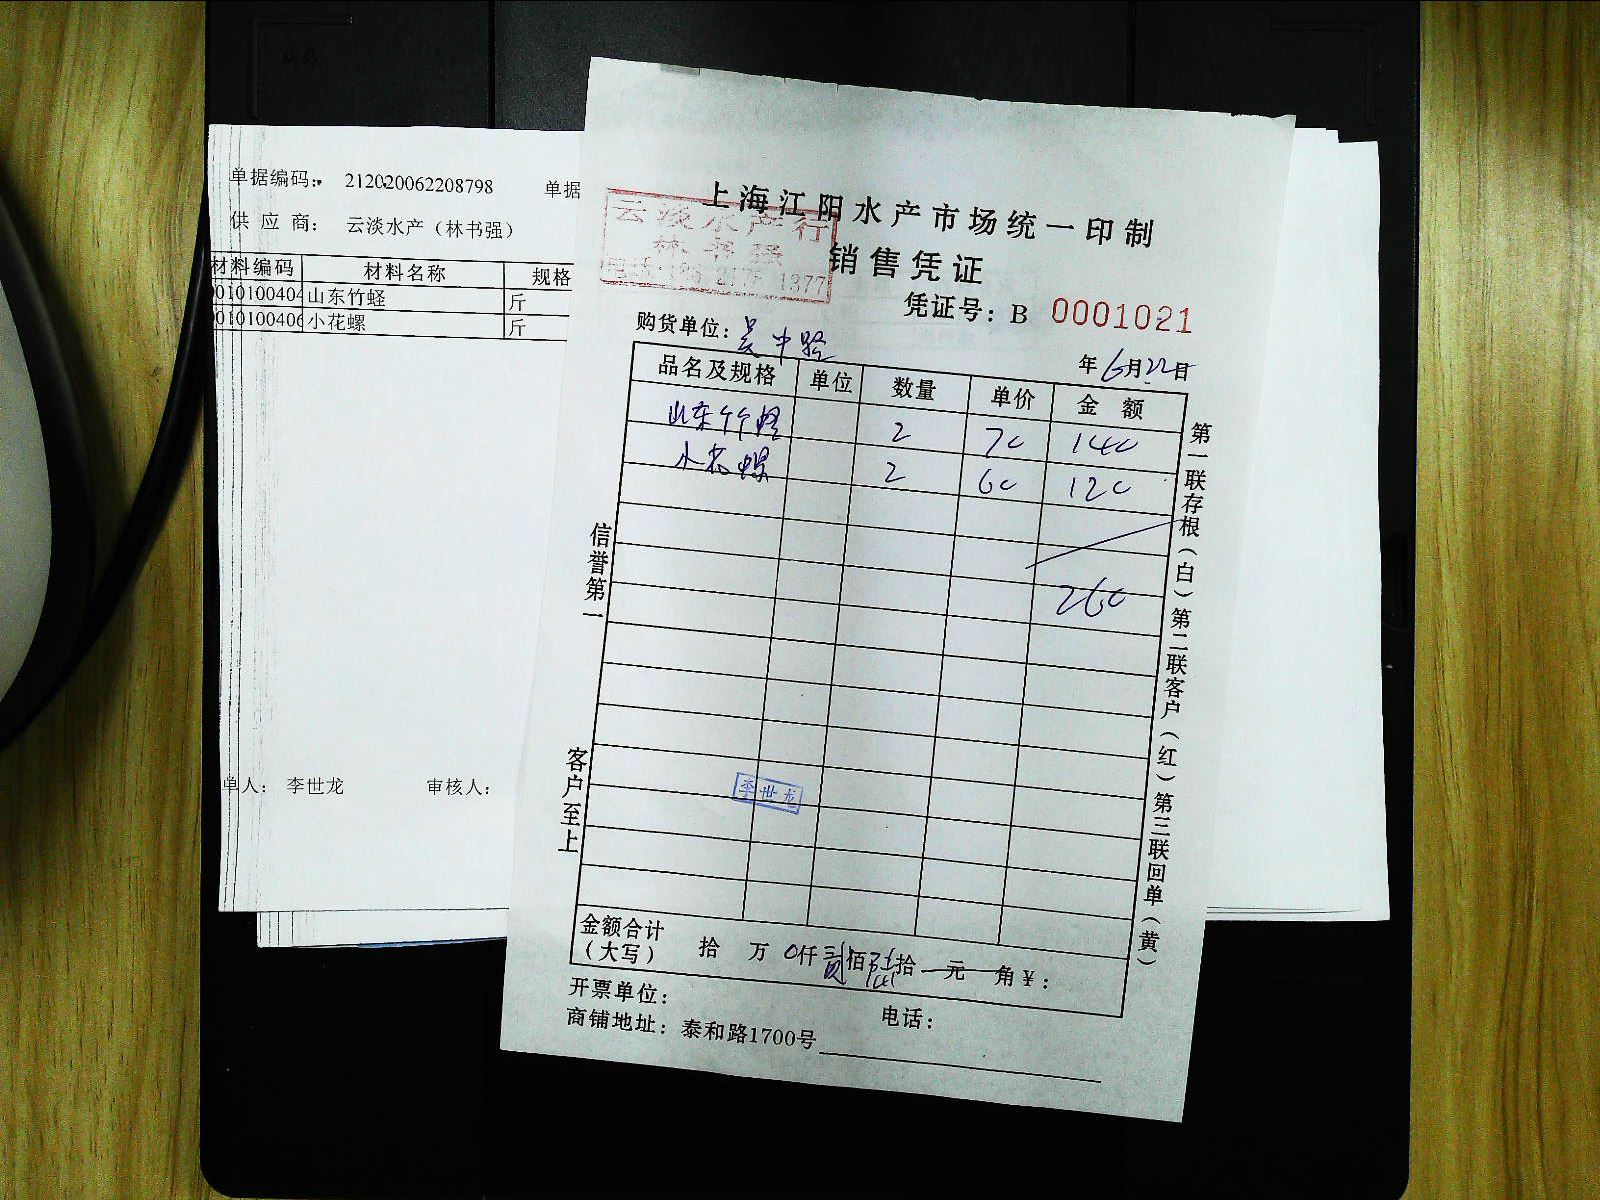 单据编码： 212020062208798 单据
供 应 商： 云淡水产（林书强）
材料编码 材料名称 规格
010100404 山东竹蛏 斤
010100406 小花螺 斤
单人： 李世龙 审核人：
上海江阳水产市场统一印制
销售凭证
云淡水产行
林书强
1377
凭证号：B 0001021
购货单位：吴中路
年6月22日
品名及规格 单位 数量 单价 金 额
山东竹蛏 2 70 140
小花螺 2 60 120
260
信誉第一
客户至上
李世龙
第一联存根（白）第二联客户（红）第三联回单（黄）
金额合计
（大写） 拾 万 0仟贰佰陆拾 元 角￥：
开票单位： 电话：
商铺地址：泰和路1700号